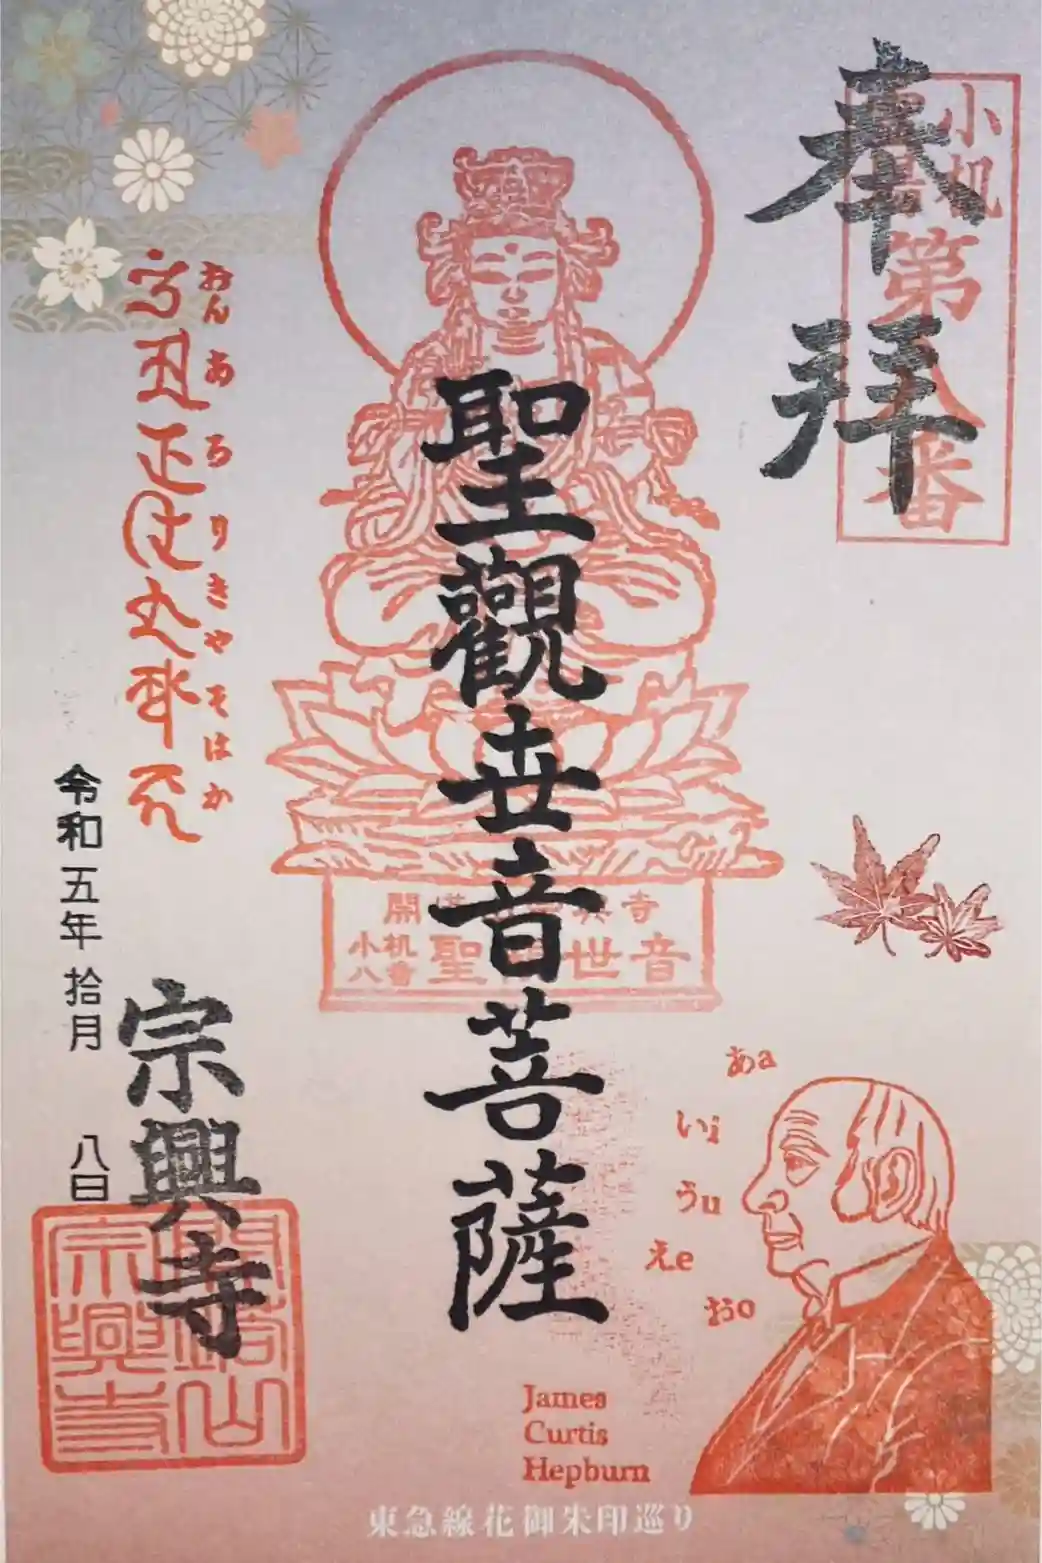 奉拝
小机
第八番
聖觀世音菩薩
開塔　　興寺
小机八番 聖観世音
おん あろりきや そはか
令和五年 拾月 八日
宗興寺
宗興寺
あa
いi
うu
えe
おo
James
Curtis
Hepburn
東急線花御朱印巡り